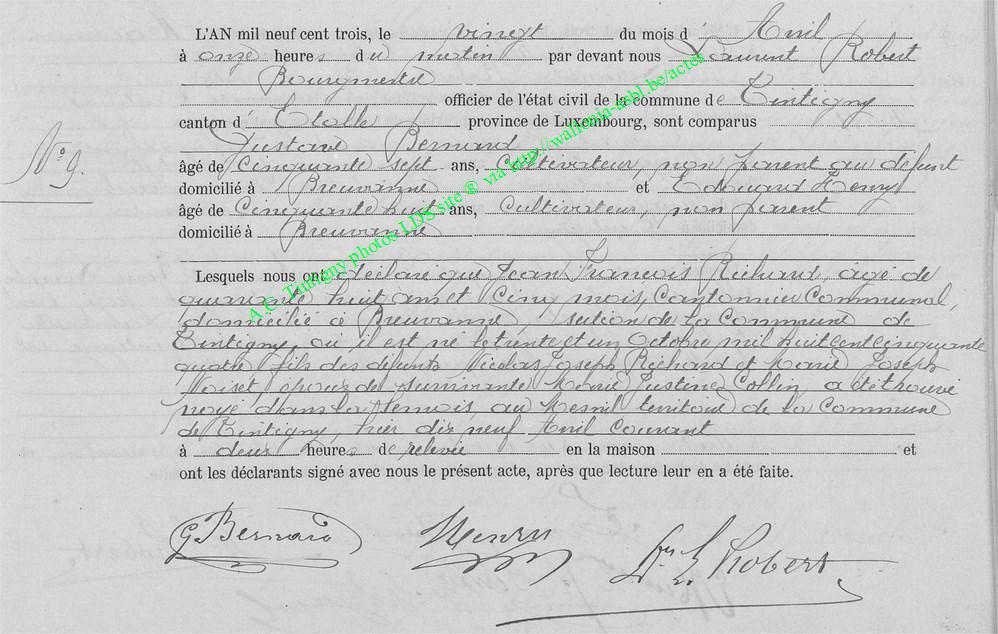 L'AN mil neuf cent trois, le vingt du mois d'Avril
à onze heures du matin par devant nous Laurent Robert
Bourgmestre
officier de l'état civil de la commune de Tintigny
canton d'Etalle province de Luxembourg, sont comparus
Gustave Bernard
âgé de Cinquante sept ans, Cultivateur, non parent au défunt
domicilié à Breuvanne et Edouard Henry
N° 9.
âgé de Cinquante huit ans, Cultivateur, non parent
domicilié à Breuvanne
Lesquels nous ont déclaré que Jean François Richard, agé de
quarante huit ans et Cinq mois, Cantonnier Communal,
domicilié à Breuvanne, section de la Commune de
Tintigny, où il est né le trente et un Octobre mil huit cent cinquante
quatre fils des défunts Nicolas Joseph Richard et Marie Joseph
époux de survivante Marie Justine Collin a été trouvé
noyé dans la Semois, au Mesnil territoire de la Commune
de Tintigny, hier dix neuf Avril Courant
à deux heures de relevée en la maison et
ont les déclarants signé avec nous le présent acte, après que lecture leur en a été faite.
G Bernard Henry Dr L Robert
A.G. Tintigny photos LDS site ® via http://wallonia-asbl.be/actes